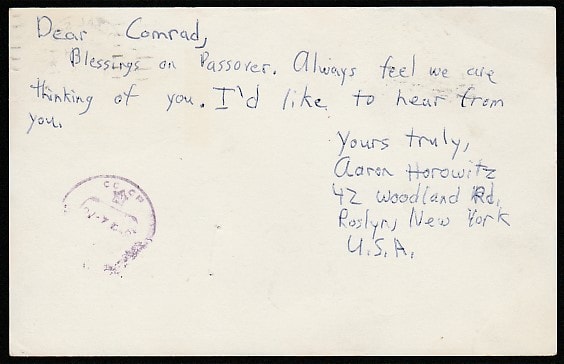 Dear Comrad,
Blessings on Passover. Always feel we are
thinking of you. I'd like to hear from
you.
Yours truly,
Aaron Horowitz
42 Woodland Rd.
Roslyn, New York
U.S.A.
CCCP